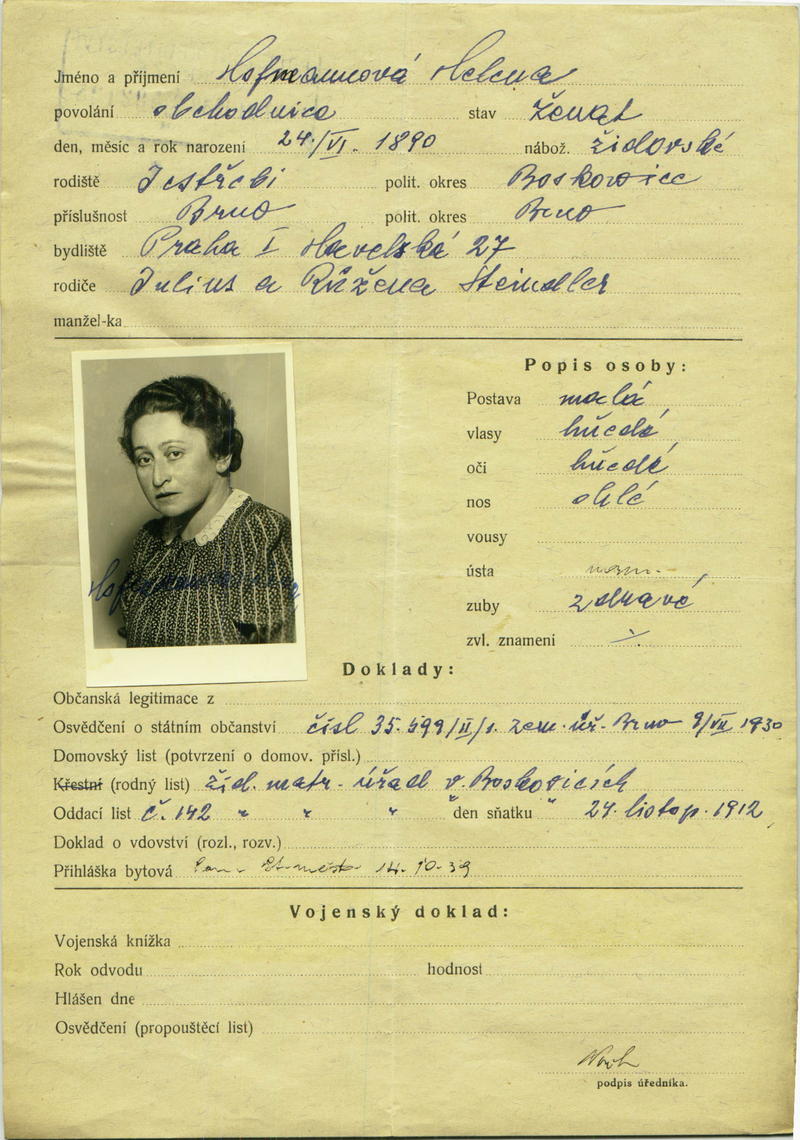 Jméno a příjmení Hofmannová Helena
povolání obchodnice stav ženat
den, měsíc a rok narození 24./VI. 1890 nábož. židovské
rodiště Jestřebi polit. okres Boskovice
příslušnost Brno polit. okres Brno
bydliště Praha I Havelská 27
rodiče Julius a Růžena Steindler
manžel-ka
Popis osoby:
Postava malá
vlasy hňedé
oči hňedé
nos
vousy
ústa norm.
zuby zdravé
zvl. znamení
Doklady:
Občanská legitimace z
Osvědčení o státním občanství čísl 35.599/II/1. zem. úř. Brno 9/VII 1930
Domovský list (potvrzení o domov. přísl.)
Křestní (rodný list) žid. matr. úřad v Boskovicích
Oddací list č. 142 " " " " den sňatku " 24. listop. 1912
Doklad o vdovství (rozl., rozv.)
Přihláška bytová 14. 10. 39
Vojenský doklad:
Vojenská knížka
Rok odvodu hodnost
Hlášen dne
Osvědčení (propouštěcí list)
podpis úředníka.